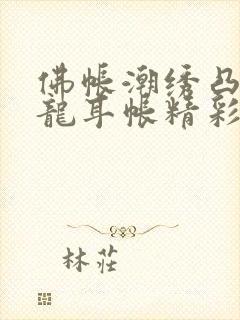 佛帐潮绣凸
龍耳帐精彩
林莊